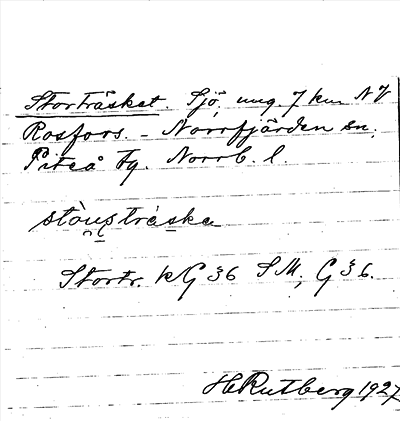 Storträsket. Sjö, ung. 7 km NV
Rosfors. - Norrfjärden sn.
Piteå tg. Norrb. l.
Stortr. KG 36 SM, G 36.
H Rutberg 1927